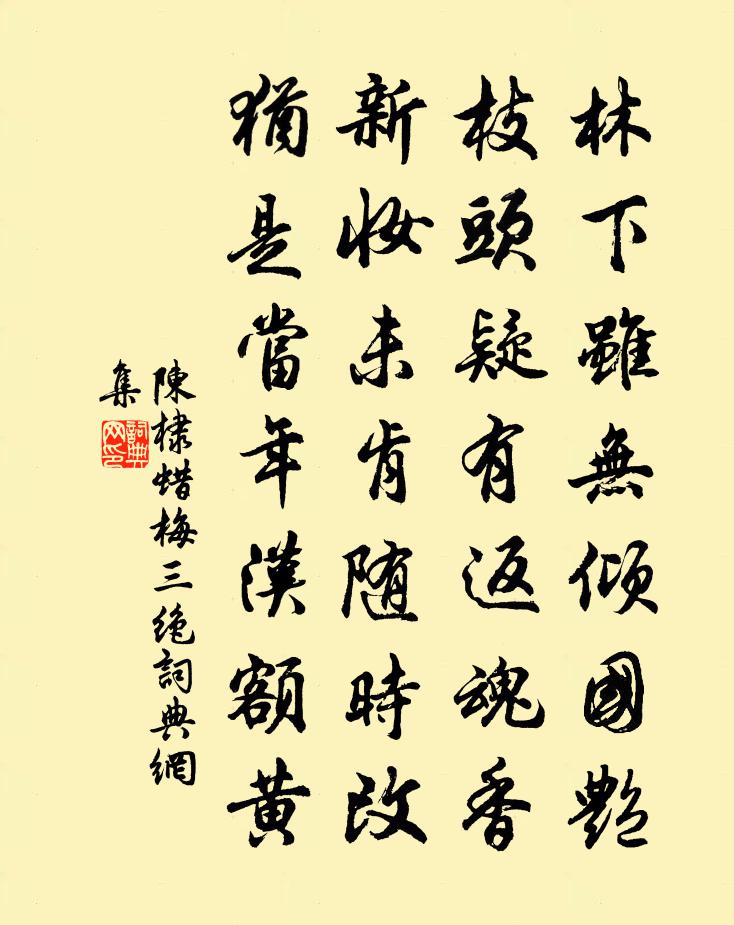 林下雖無傾國艷
枝頭疑有返魂香
新妝未肯随時改
猶是當年漢額黄
陳棣蜡梅三絶詞典網
集
詞典网印